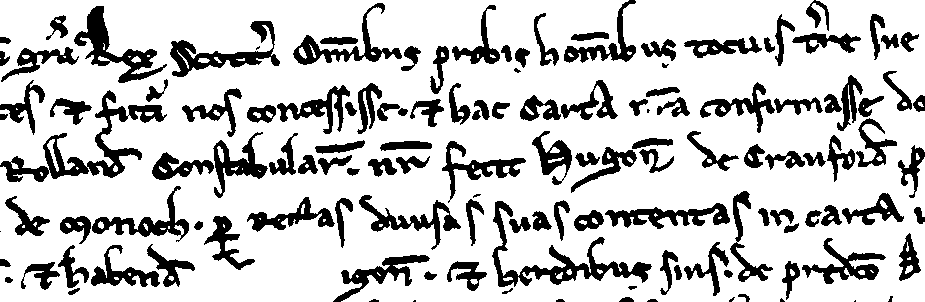 gr̃a Rex Scott. Om̅ibus probis hom̅ibus tocius t̃re sue
et nos concessisse. et hac carta confirmasse
Rolland̃ Constabular̃. nr̃ fecit Hugoñ de Crauford̃
de monoch. p̱ rectas diuisas suas contentas in carta
et habend̃ igoñ. et heredibus suis. de pred̃co